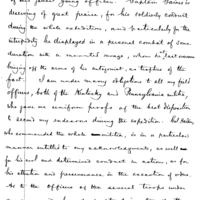 of this gallant young officer. Captain Gaines is
deserving of great praise, for his soldierly conduct
during the whole expedition, and particularly for the
intrepidity he displayed in a personal combat of some
duration with a mounted savage, whom he
bearing off the arms of his antagonist, as trophies of the
fact. I am under many obligations to all my field
officers, both of the Kentucky and Pennsylvania
who gave me uniform proofs of the best disposition
to second my endeavors during the expedition.
who commanded the whole in a particular
manner entitled to my acknowledgments, as well
for his cool and determined conduct in action, as for
his attention and perseverance in the execution of orders.
As to the officers of the several troops under